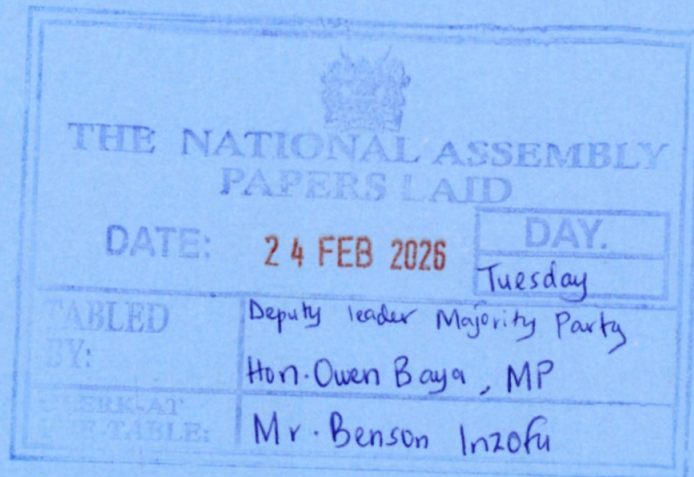 THE NATIONAL ASSEMBLY
PAPERS LAID
DATE: 24 FEB 2026 DAY.
Tuesday
TABLED BY: Deputy leader Majority Party
Hon. Owen Baya, MP
CLERK-AT THE-TABLE: Mr. Benson Inzofu